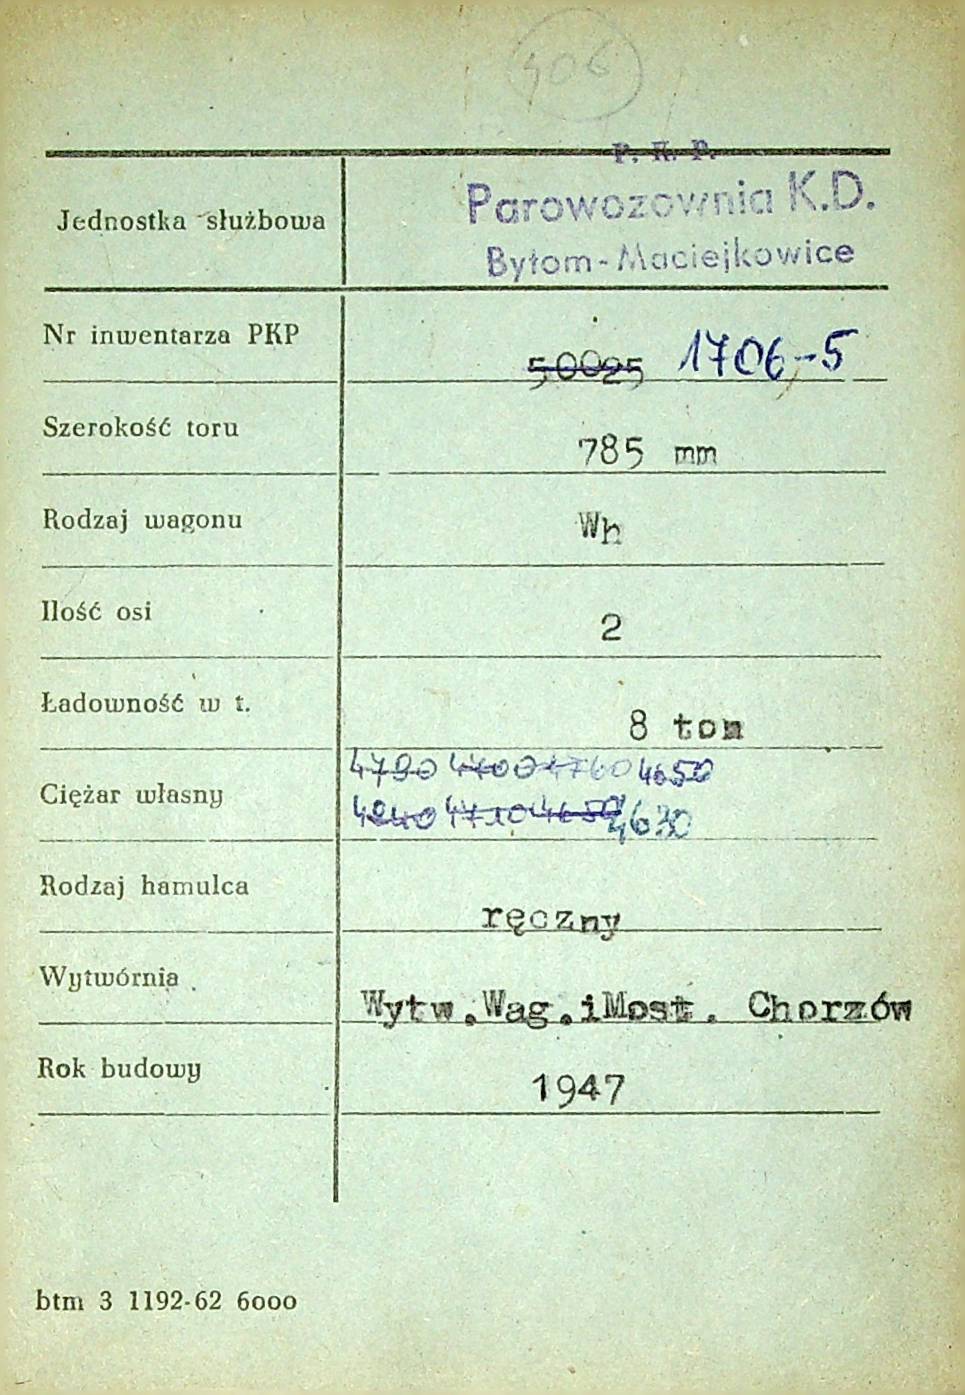 406
P. K. P.
Jednostka służbowa Parowozownia K.D.
Bytom-Maciejkowice
Nr inwentarza PKP 50025 1706-5
Szerokość toru 785 mm
Rodzaj wagonu Wh
Ilość osi 2
Ładowność w t. 8 ton
4790 4700 4760 4650
Ciężar własny 4840 4710 4650 4630
Rodzaj hamulca ręczny
Wytwórnia Wytw.Wag.iMost. Chorzów
Rok budowy 1947
btm 3 1192-62 6000